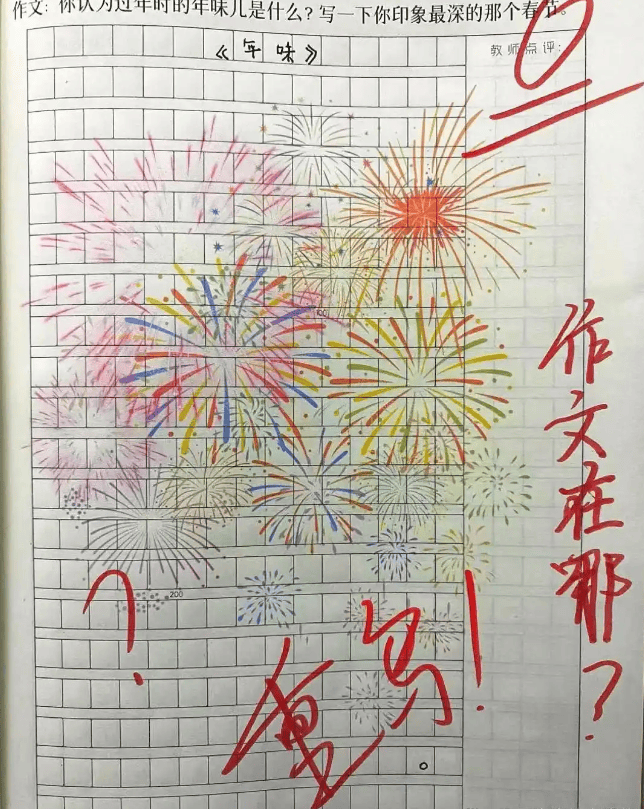 作文：你认为过年时的年味儿是什么？写一下你印象最深的那个春节。
《年味》
教师点评：
0
作文在哪？
200
？
重写！
。